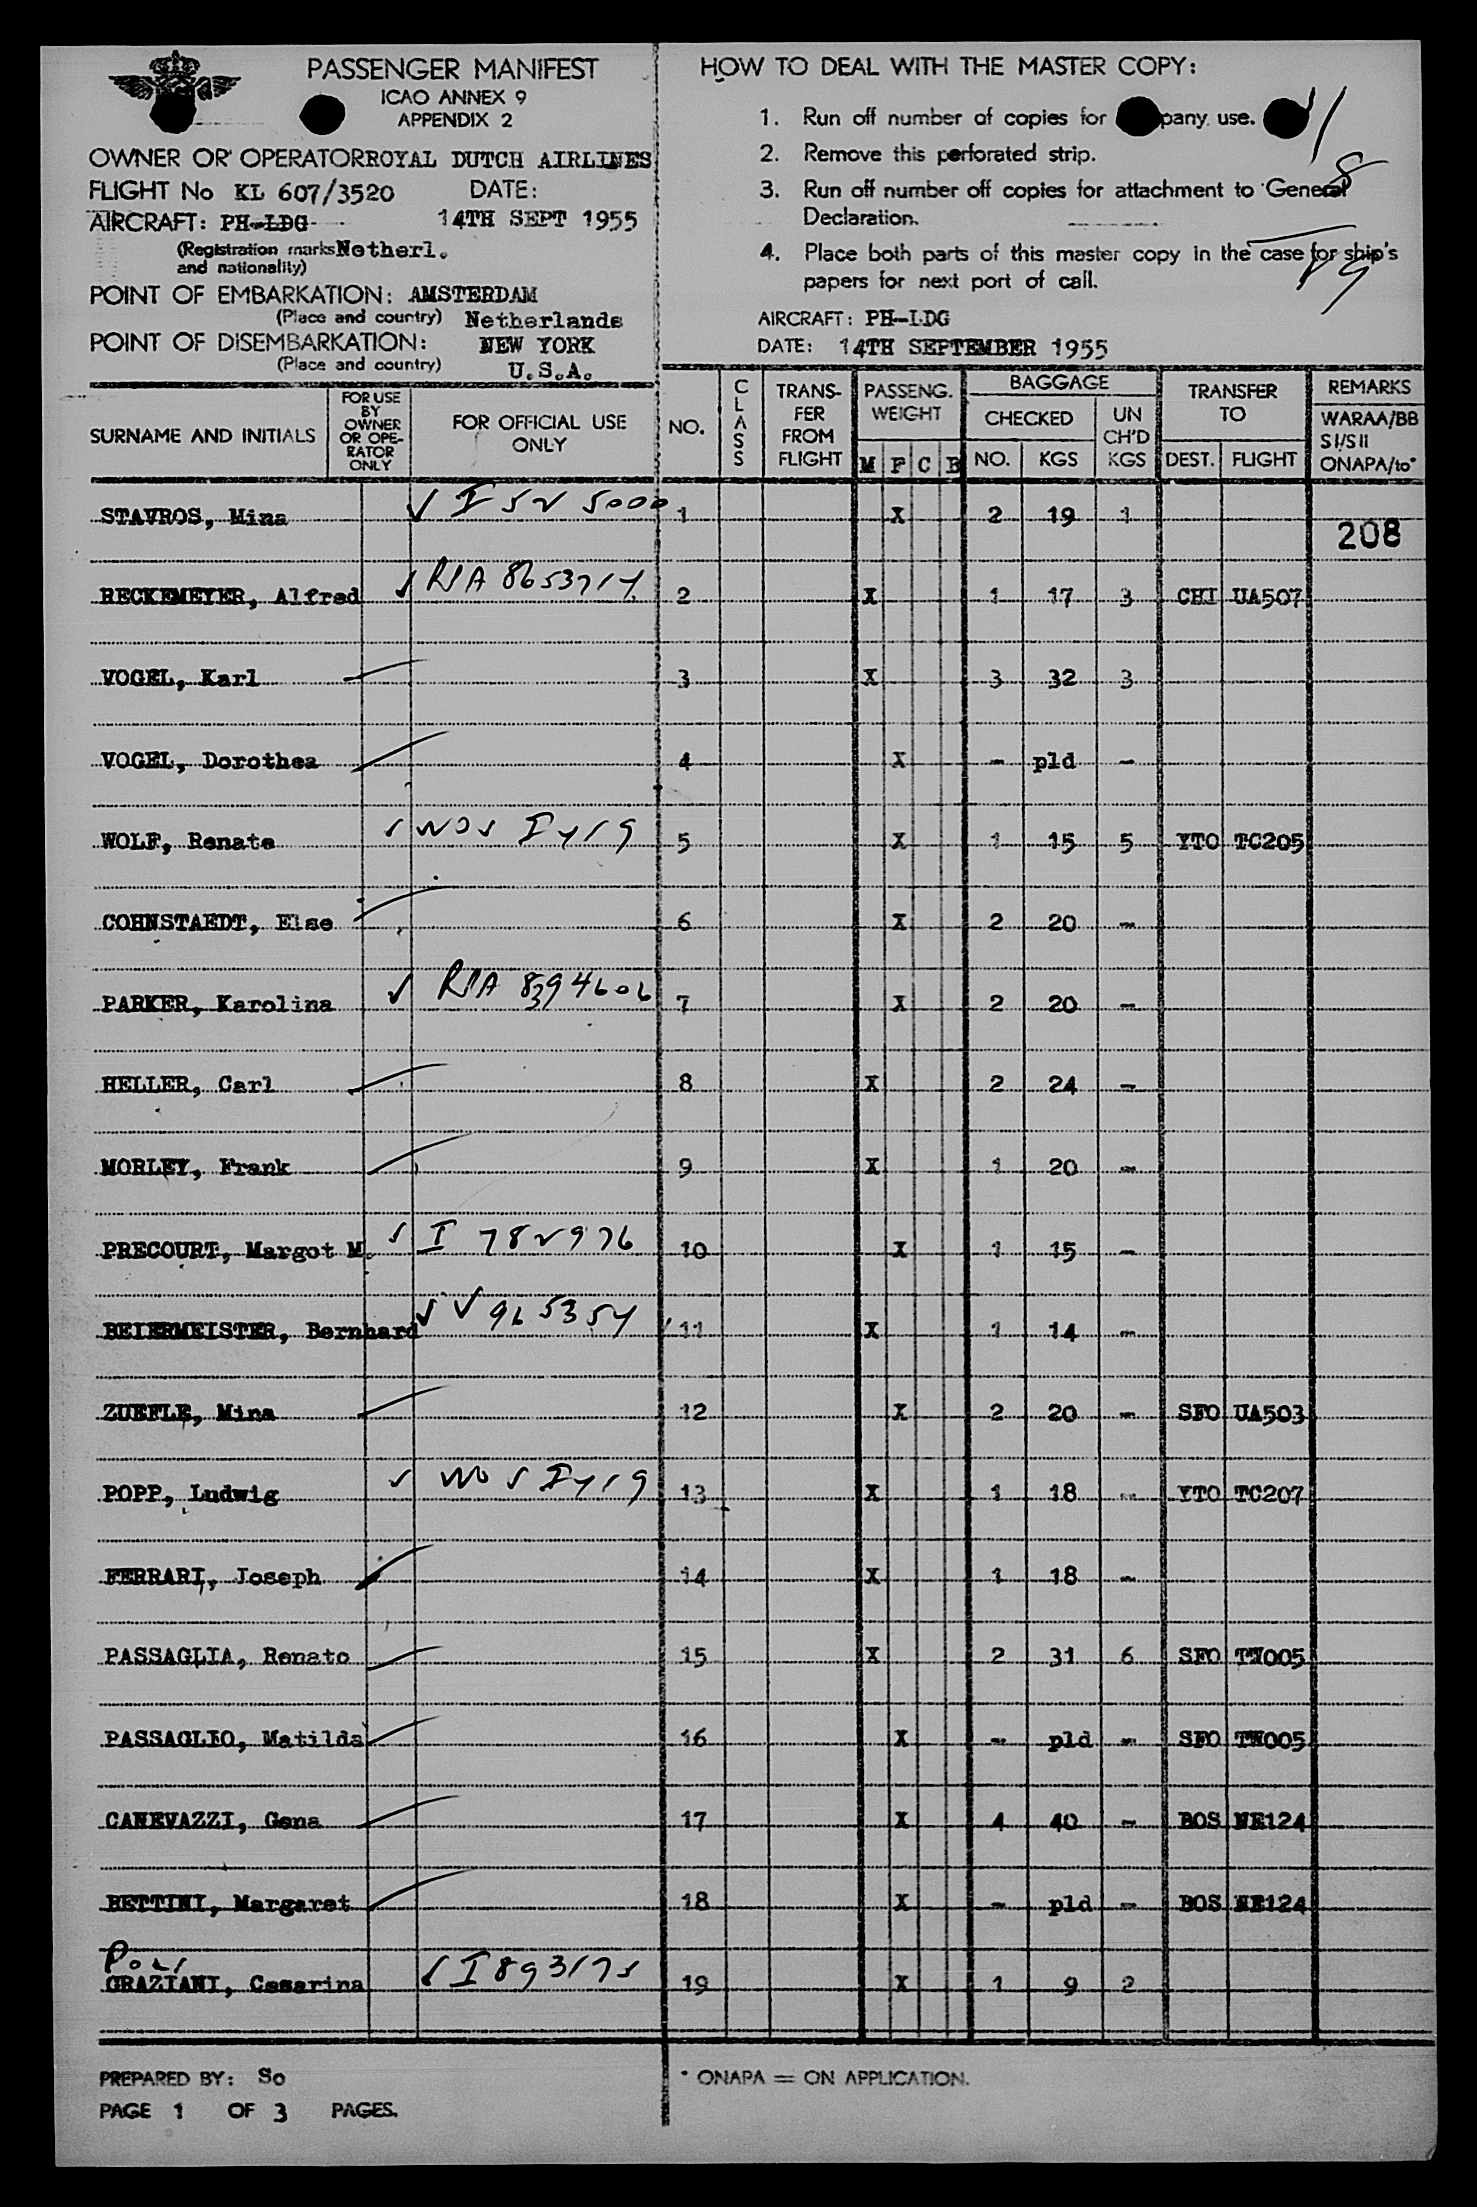 PASSENGER MANIFEST
ICAO ANNEX 9
APPENDIX 2
OWNER OR OPERATOR ROYAL DUTCH AIRLINES
FLIGHT No KL 607/3520 DATE:
AIRCRAFT: PH-LDG 14TH SEPT 1955
(Registration marks Netherl.
and nationality)
POINT OF EMBARKATION: AMSTERDAM
(Place and country) Netherlands
POINT OF DISEMBARKATION: NEW YORK
(Place and country) U.S.A.
HOW TO DEAL WITH THE MASTER COPY:
1. Run off number of copies for pany use.
2. Remove this perforated strip.
3. Run off number off copies for attachment to General
Declaration.
4. Place both parts of this master copy in the case for ship's
papers for next port of call.
AIRCRAFT: PH-LDG
DATE: 14TH SEPTEMBER 1955
SURNAME AND INITIALS
FOR USE BY OWNER OR OPE-RATOR ONLY
FOR OFFICIAL USE ONLY
NO.
CLASS
TRANS-FER FROM FLIGHT
PASSENG. WEIGHT
M F C B
BAGGAGE
CHECKED
NO. KGS
UN CH'D KGS
TRANSFER TO
DEST. FLIGHT
REMARKS
WARAA/BB
SI/SII
ONAPA/to*
STAVROS, Mina I 52 5000 1 X 2 19 1
208
BECKEMEYER, Alfred RIA 8653714 2 X 1 17 3 CHI UA507
VOGEL, Karl 3 X 3 32 3
VOGEL, Dorothea 4 X - pld -
WOLF, Renate 5 X 1 15 5 YTO TC205
COHNSTAEDT, Else 6 X 2 20 -
PARKER, Karolina RIA 8394606 7 X 2 20 -
HELLER, Carl 8 X 2 24 -
MORLEY, Frank 9 X 1 20 -
PRECOURT, Margot M. I 782976 10 X 1 15 -
BEIERMEISTER, Bernhard V 965354 11 X 1 14 -
ZUEFLE, Mina 12 X 2 20 - SFO UA503
POPP, Ludwig 13 X 1 18 - YTO TC207
FERRARI, Joseph 14 X 1 18 -
PASSAGLIA, Renato 15 X 2 31 6 SFO TW005
PASSAGLIO, Matilda 16 X - pld - SFO TW005
CANEVAZZI, Gena 17 X 4 40 - BOS NE124
BETTINI, Margaret 18 X - pld - BOS NE124
GRAZIANI, Cesarina I 893175 19 X 1 9 2
PREPARED BY: So
* ONAPA = ON APPLICATION.
PAGE 1 OF 3 PAGES.